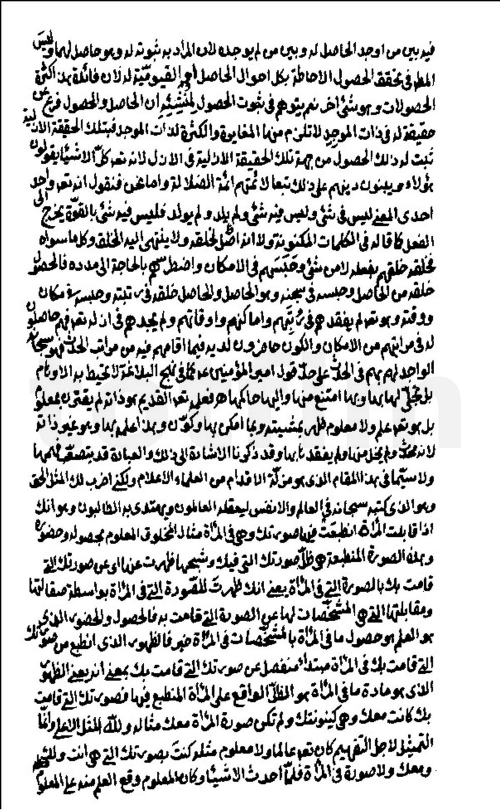 فيه بين من اوجد الحاصل له وبين من لم يوجد لان المراد به ثبوته له وهو حاصل لهما وليس
المطلوب في تحقق الحصول الاحاطة بكل احوال الحاصل القيومية له لان فائدة هذا الكثرة
الحصولات وهو شئ اخر نعم يتوهم في ثبوت الحصول ان الحاصل والحصول فرع عن
حقيقة له في ذات الموجد لا تلزم منها المغايرة والكثرة لذات الموجد فبتلك الحقيقة الازلية
ثبت له ذلك الحصول من جهة تلك الحقيقة الازلية في الازل لانه تعالى كل الاشياء يقولون
هؤلاء ويبنون دينهم على ذلك تبعا لائمتهم ائمة الضلالة واما نحن فنقول انه تعالى واحد
احدى المعنى ليس في شئ وليس فيه شئ ولم يلد ولم يولد فليس فيه شئ بالقوة يخرج الى
الفعل كما قاله في الكلمات المكنونة ولا انه اصل لخلقه ولا ينتهى اليه الخلق وكلما سواه
فخلقه خلقهم بفعله لا من شئ وحبسهم في الامكان واضطرهم بالحاجة الى مدده فالحصول
خلقه من الحاصل وحبسه في سجنه وهو الحاصل والحاصل خلقه في رتبته وحبسه في مكان
ووقته وهو تعالى لم يفقدهم في رتبهم واماكنهم واوقاتهم ولم يجدهم في ازله تعالى فهم حاصلون
له في مراتبهم من الامكان والكون حاضرون لديه فيما اقامهم فيه من مراتب الخلق فهو سبحانه
الواحد لهم بهم في الحدث على حد قول امير المؤمنين ع كما في نهج البلاغة لا تحيط به الاوهام
بل تجلى لها بها وبها امتنع منها واليها حاكمها هو فعله تعالى القديم هو ذاته لم يقترن بمعلوم
بل هو تعالى علم ولا معلوم فلما بمشيته وبما امكن بها وكون وبه اعلمها بها وهو غير ذاته
لانه محدث ولم يخل منها ولم يفقدها بها وقد ذكرنا الاشارة الى ذلك والعبارة قد يتصعب فهمها
ولا سيما في هذا المقام الذى هو مزلة الاقدام من العلماء الاعلام ولكنى اضرب لك المثل الحق
وهو الذى كتبه سبحانه في العالم والانفس ليعقله العالمون ويهتدى به الطالبون وهو انك
اذا قابلت المرآة انطبعت فيها صورتك وهى في المرآة مثال المخلوق المعلوم بحصوله وحضوره
وهذه الصورة المنطبعة هى ظل صورتك التى فيك وشبحها ظهرت عنها اى عن صورتك التى
قامت بك بالصورة التى في المرآة يعنى انك ظهرت للصورة التى في المرآة بواسطة صقالتها
ومقابلتها التى هى المشخصات لها عن الصورة التى قامت به فالحصول والحضور الذى
هو العلم هو حصول ما في المرآة بالمشخصات في المرآة ضو فالظهور الذى انطبع من صورتك
التى قامت بك في المرآة مبتداء منفصل عن صورتك التى قامت بك بمعنى انه يعنى الظهور
الذى هو مادة ما في المرآة هو الظل الواقع على المرآة المنطبع فيها فصورتك التى قامت
بك كانت معك وهى كينونتك ولم تكن صورة المرآة معك مثاله ولله المثل الاعلى وانما
التمثيل لاجل التفهيم كان تعالى عالما ولا معلوم مثله كنت بصورتك التى هى انت ولك
ومعك ولا صورة في المرآة فلما أحدث الاشياء وكان المعلوم وقع العلم منه على المعلوم